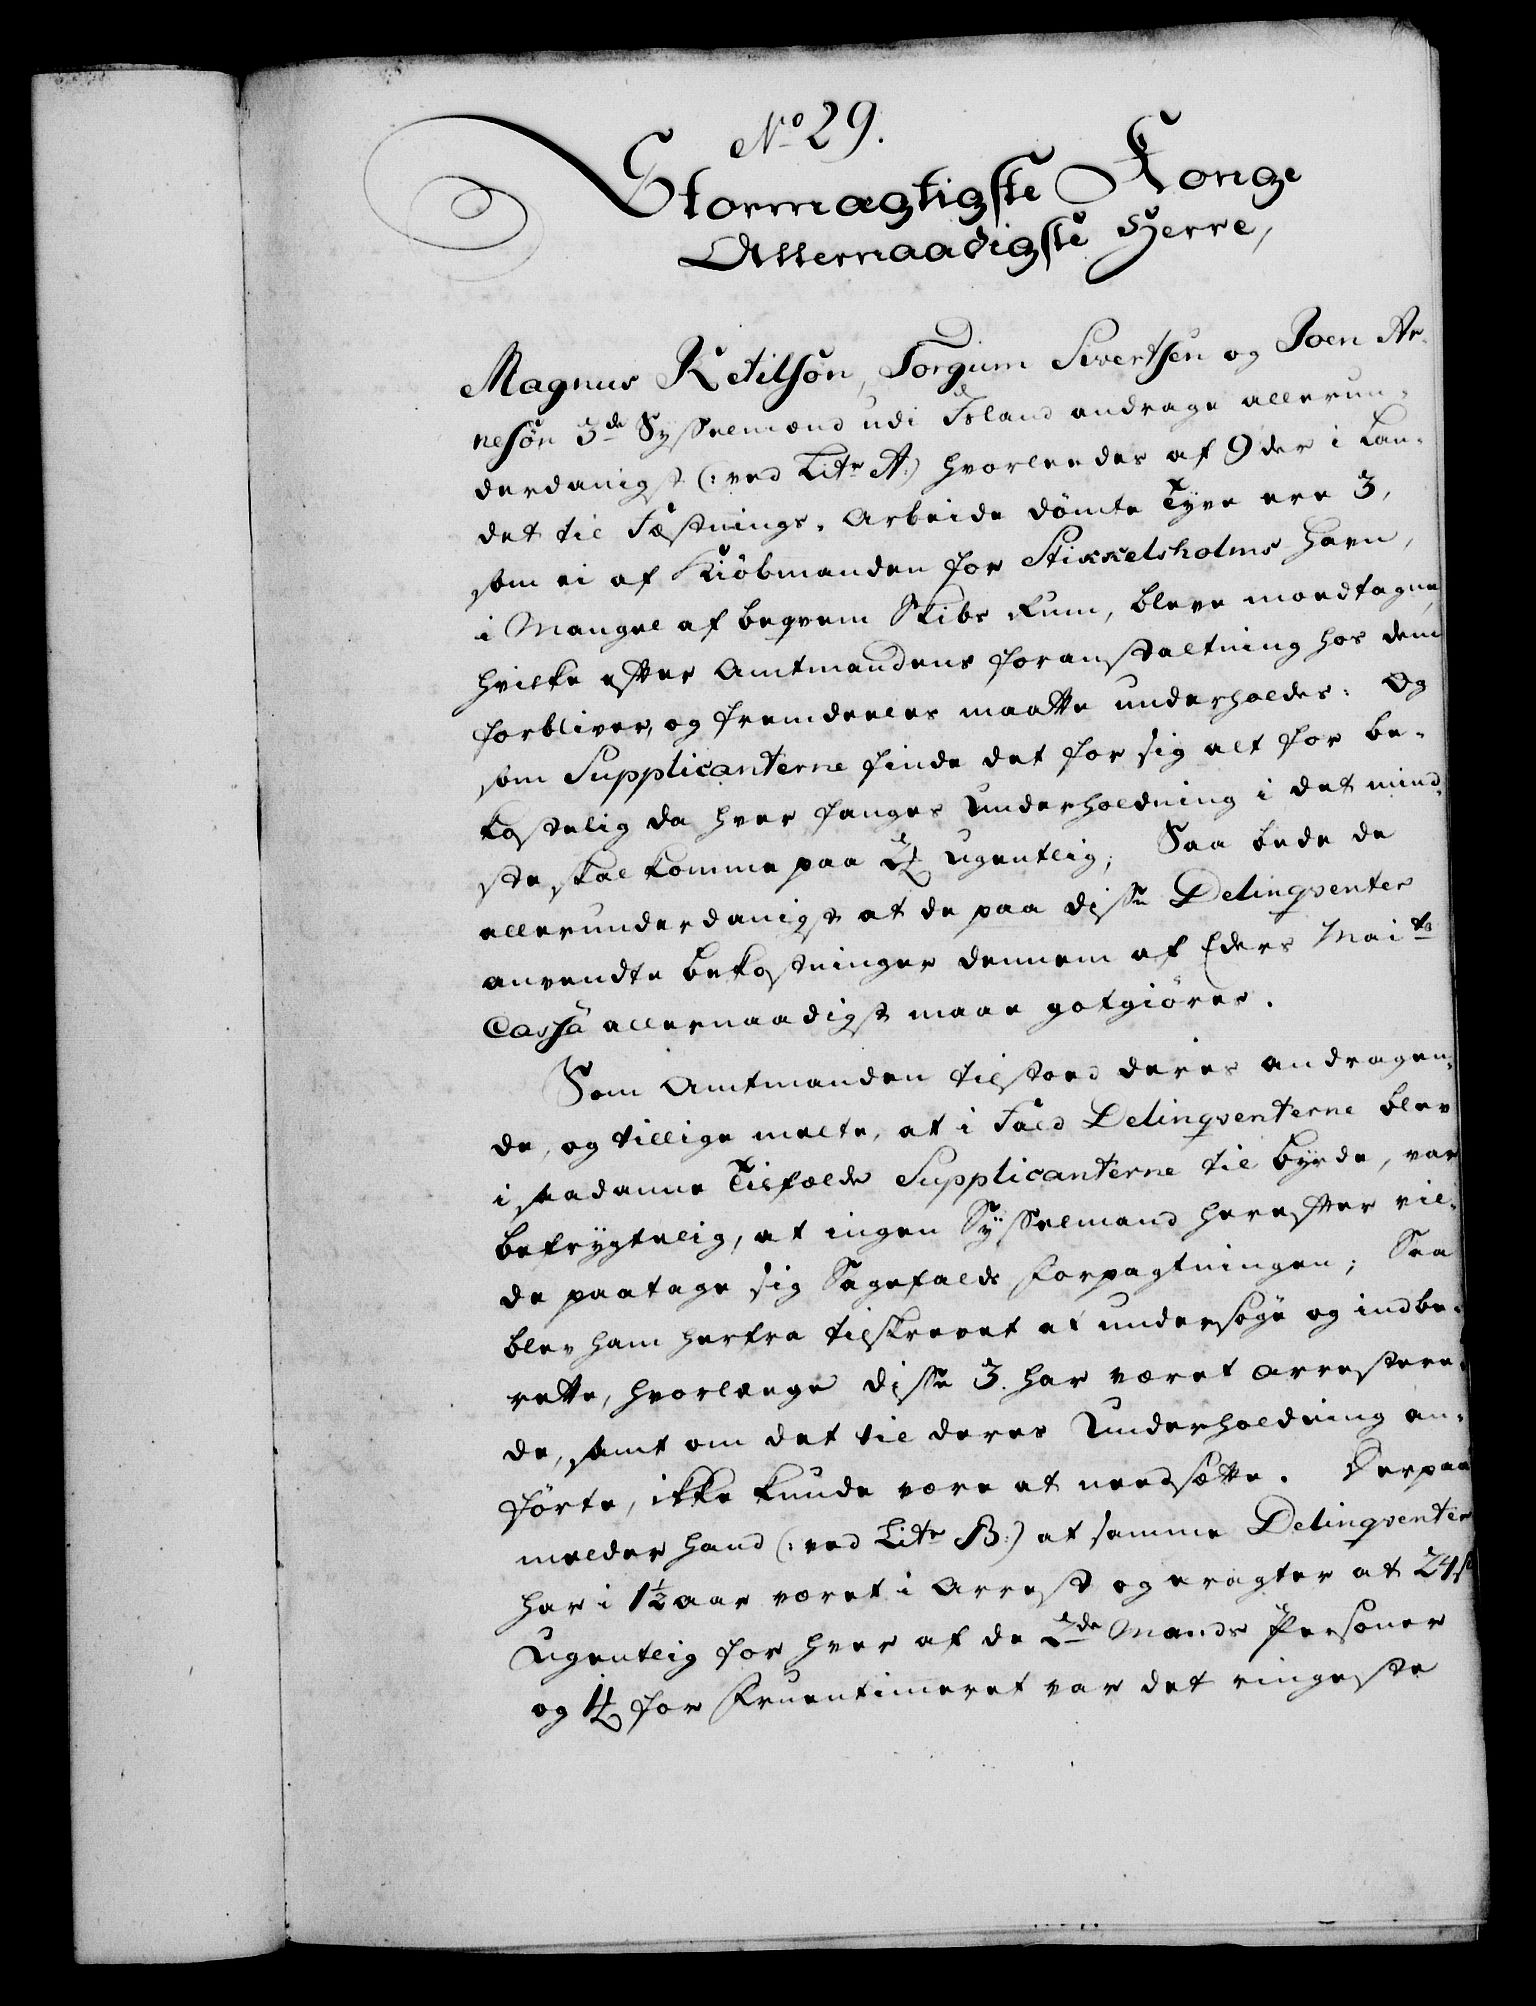 No 29.
Stormægtigste Konge
Allernaadigste Herre,
Magnus Ketilsøn, Torgium Sivertsen og Joen Ar-
nesøn 3de Sysselmænd udi Island andrage allerun-
derdanigst (: ved Litr A:) hvorleedes af 9 der i Lan-
det til Fæstnings-Arbeide dömte Tyve ere 3,
som ei af Kiöbmanden for Stikkelsholms Havn,
i Mangel af beqvem Skibs Rum, bleve modtagne,
hvilke efter Amtmandens foranstaltning hos dem
forbliver, og fremdeeles maatte underholdes: Og
som Supplicanterne finde det for sig alt for be-
kostelig da hver fanges Underholdning i det mind-
ste skal komme paa 2 ₰ Ugentlig; Saa bede de
allerunderdanigst at de paa disse Delinqventer
anvendte bekostninger dennem af Eders Maits
Cassa allernaadigst maae gotgiöres.
Som Amtmanden tilstoed deres andragen-
de, og tillige melte, at i Fald Delinqventerne blev
i saadanne Tilfælde Supplicanterne til byrde, var
befrygtelig, at ingen Sysselmand herefter vil-
de paatage sig Sagefalds Forpagtningen; Saa
blev ham herfra tilskrevet at undersöge og indbe-
rette, hvorlænge disse 3. har været arrestere-
de, samt om det til deres Underholdning an-
förte, ikke kunde være at needsætte. Derpaa
melder hand (: ved Litr B:) at samme Delinqventer
har i 1½ aar været i Arrest og eragter at 24 s
Ugentlig for hver af de 2de Mands Personer
og 1 ₰ for Fruentimeret var det ringeste